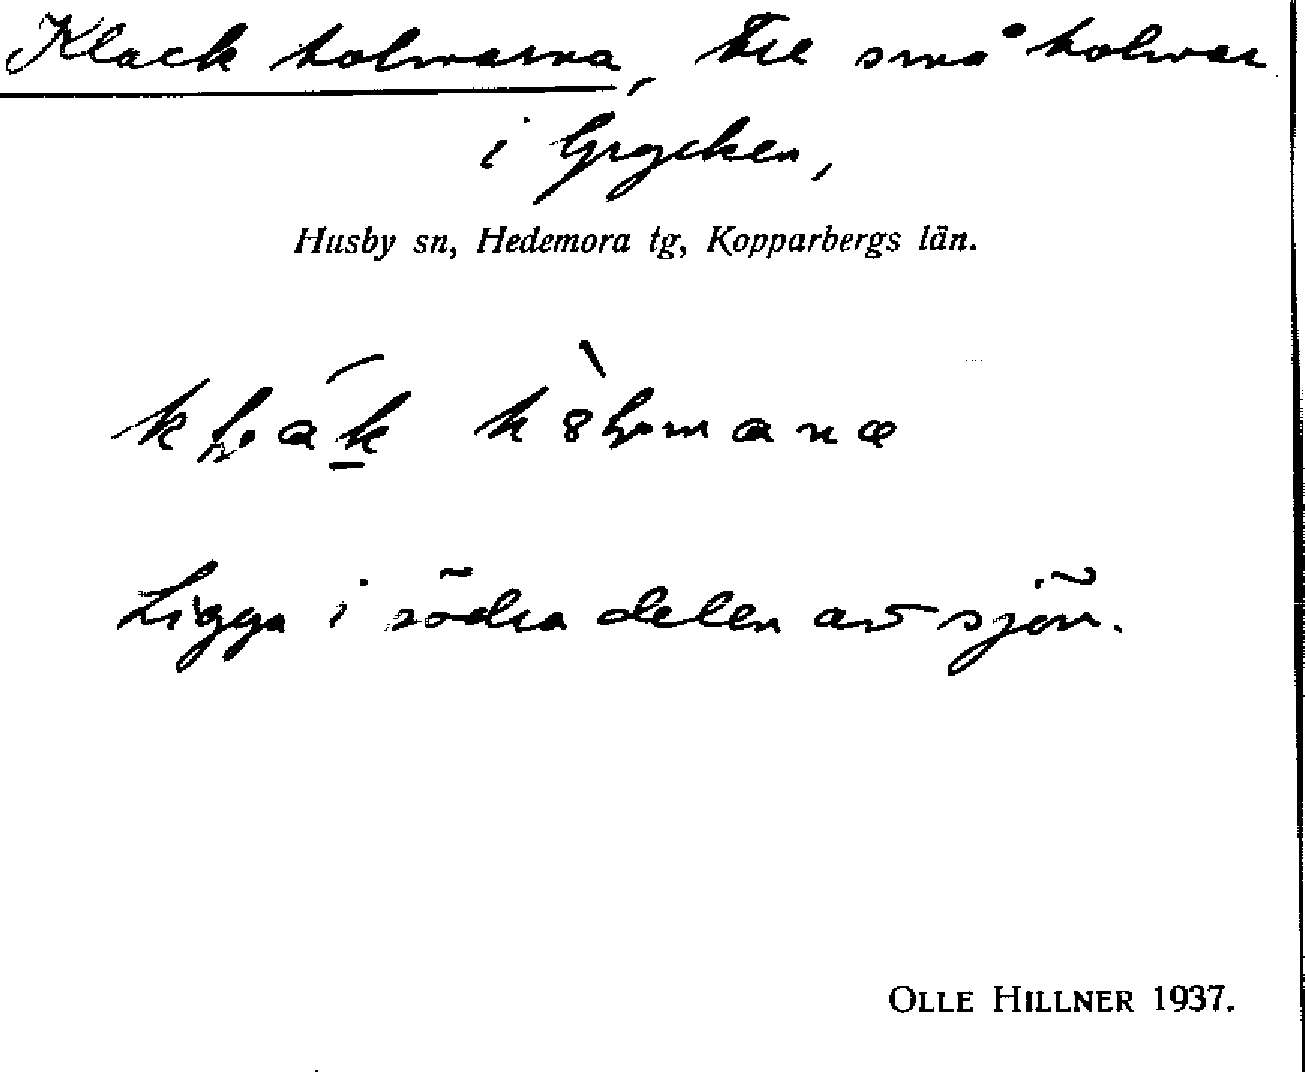 Klack holmarna, tre små holmar
i Grycken,
Husby sn, Hedemora tg, Kopparbergs län.
Ligga i södra delen av sjön.
OLLE HILLNER 1937.